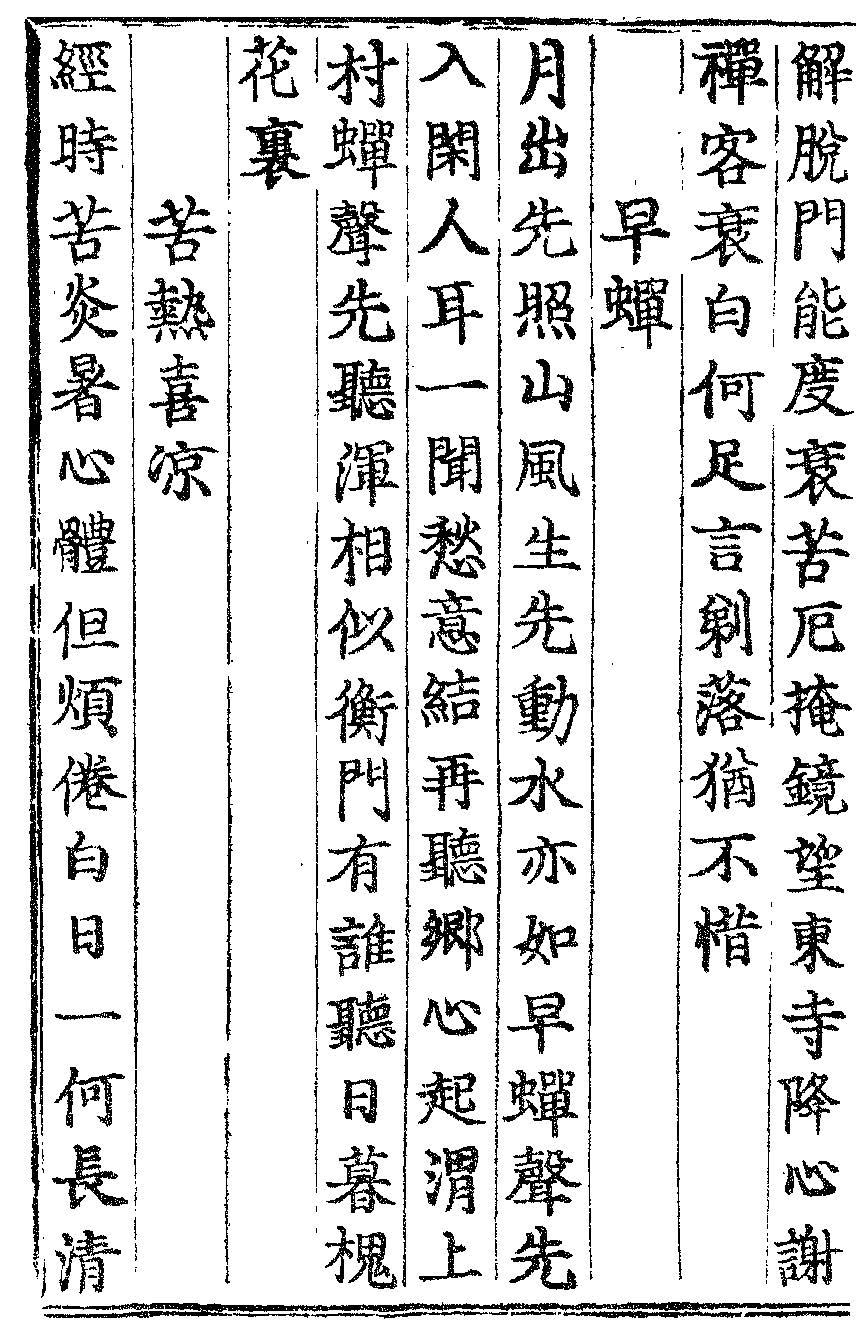 解脫門能度衰苦厄掩鏡望東寺降心謝
禪客衰白何足言剃落猶不惜
早蟬
月出先照山風生先動水亦如早蟬聲先
入閑人耳一聞愁意結再聽鄉心起渭上
村蟬聲先聽渾相似衡門有誰聽日暮槐
花裏
苦熱喜凉
經時苦炎暑心體但煩倦白日一何長清